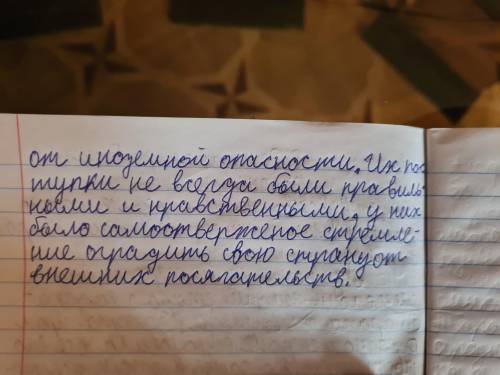 от иноземной опасности. Их пос-
тупки не всегда были правиль-
ными и нравственными, у них
было самоотверженое стремле-
ние оградить свою страну от
внешних посягательств.